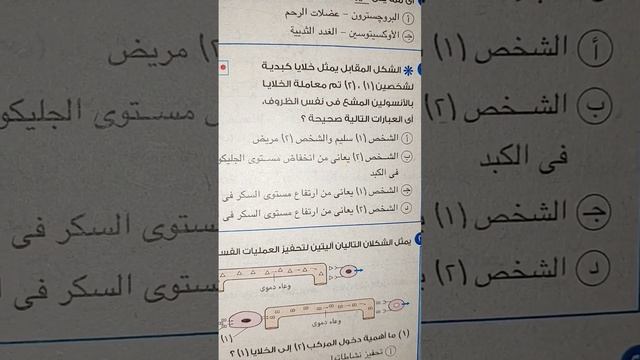 أ البروچسترون - عضلات الرحم
جـ الأوكسيتوسين - الغدد الثديية
* الشكل المقابل يمثل خلايا كبدية
لشخصين (١)، (٢) تم معاملة الخلايا
بالأنسولين المشع فى نفس الظروف،
أى العبارات التالية صحيحة ؟
أ الشخص (١) سليم والشخص (٢) مريض
ب الشخص (٢) يعانى من انخفاض مستوى الجليكو
فى الكبد
جـ الشخص (١) يعانى من ارتفاع مستوى السكر فى
د الشخص (٢) يعانى من ارتفاع مستوى السكر فى
يمثل الشكلان التاليان آليتين لتحفيز العمليات الفس
وعاء دموى
وعاء دموى
(١)
(١) ما أهمية دخول المركب (٢) إلى الخلايا (١) ؟
أ تحفيز نشاطاتها
أ الشخص (١)
٢) مريض
ب الشخص (٢)
مستوى الجليكو
فى الكبد
جـ الشخص (١)
مستوى السكر فى
د الشخص (٢)
ستوى السكر فى